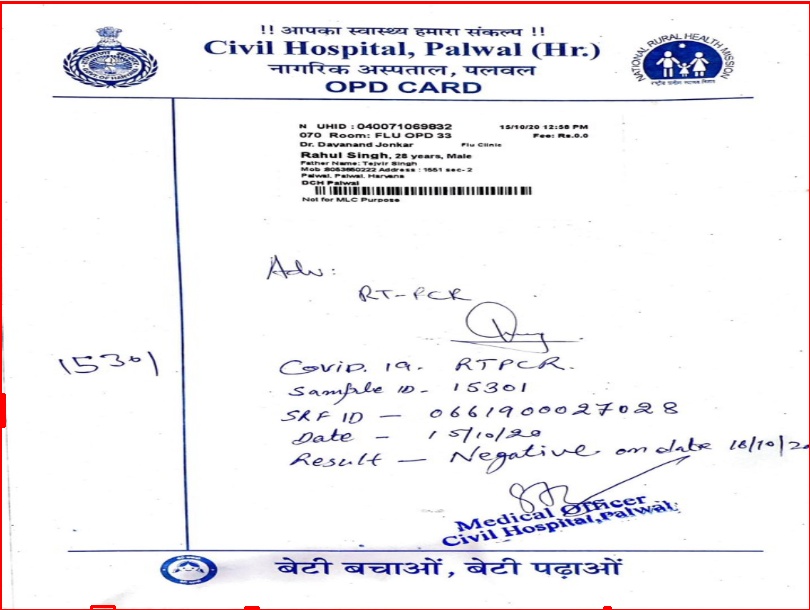 !! आपका स्वास्थ्य हमारा संकल्प !!
Civil Hospital, Palwal (Hr.)
नागरिक अस्पताल, पलवल
OPD CARD
NATIONAL RURAL HEALTH MISSION
N UHID : 040071069832 15/10/20 12:58 PM
070 Room: FLU OPD 33 Fee: Rs.0.0
Dr. Dayanand Jonkar Flu Clinic
Rahul Singh, 28 years, Male
Father Name: Tejvir Singh
Mob 8053660222 Address : 1551 sec- 2
Palwal, Palwal, Haryana
DCH Palwal
Not for MLC Purpose
Adv:
RT-PCR
15301
Covid. 19. RTPCR.
Sample ID - 15301
SRF ID - 0661900027028
Date - 15/10/20
Result - Negative on date 18/10/20
Medical Officer
Civil Hospital,Palwal
बेटी बचाओं, बेटी पढ़ाओं